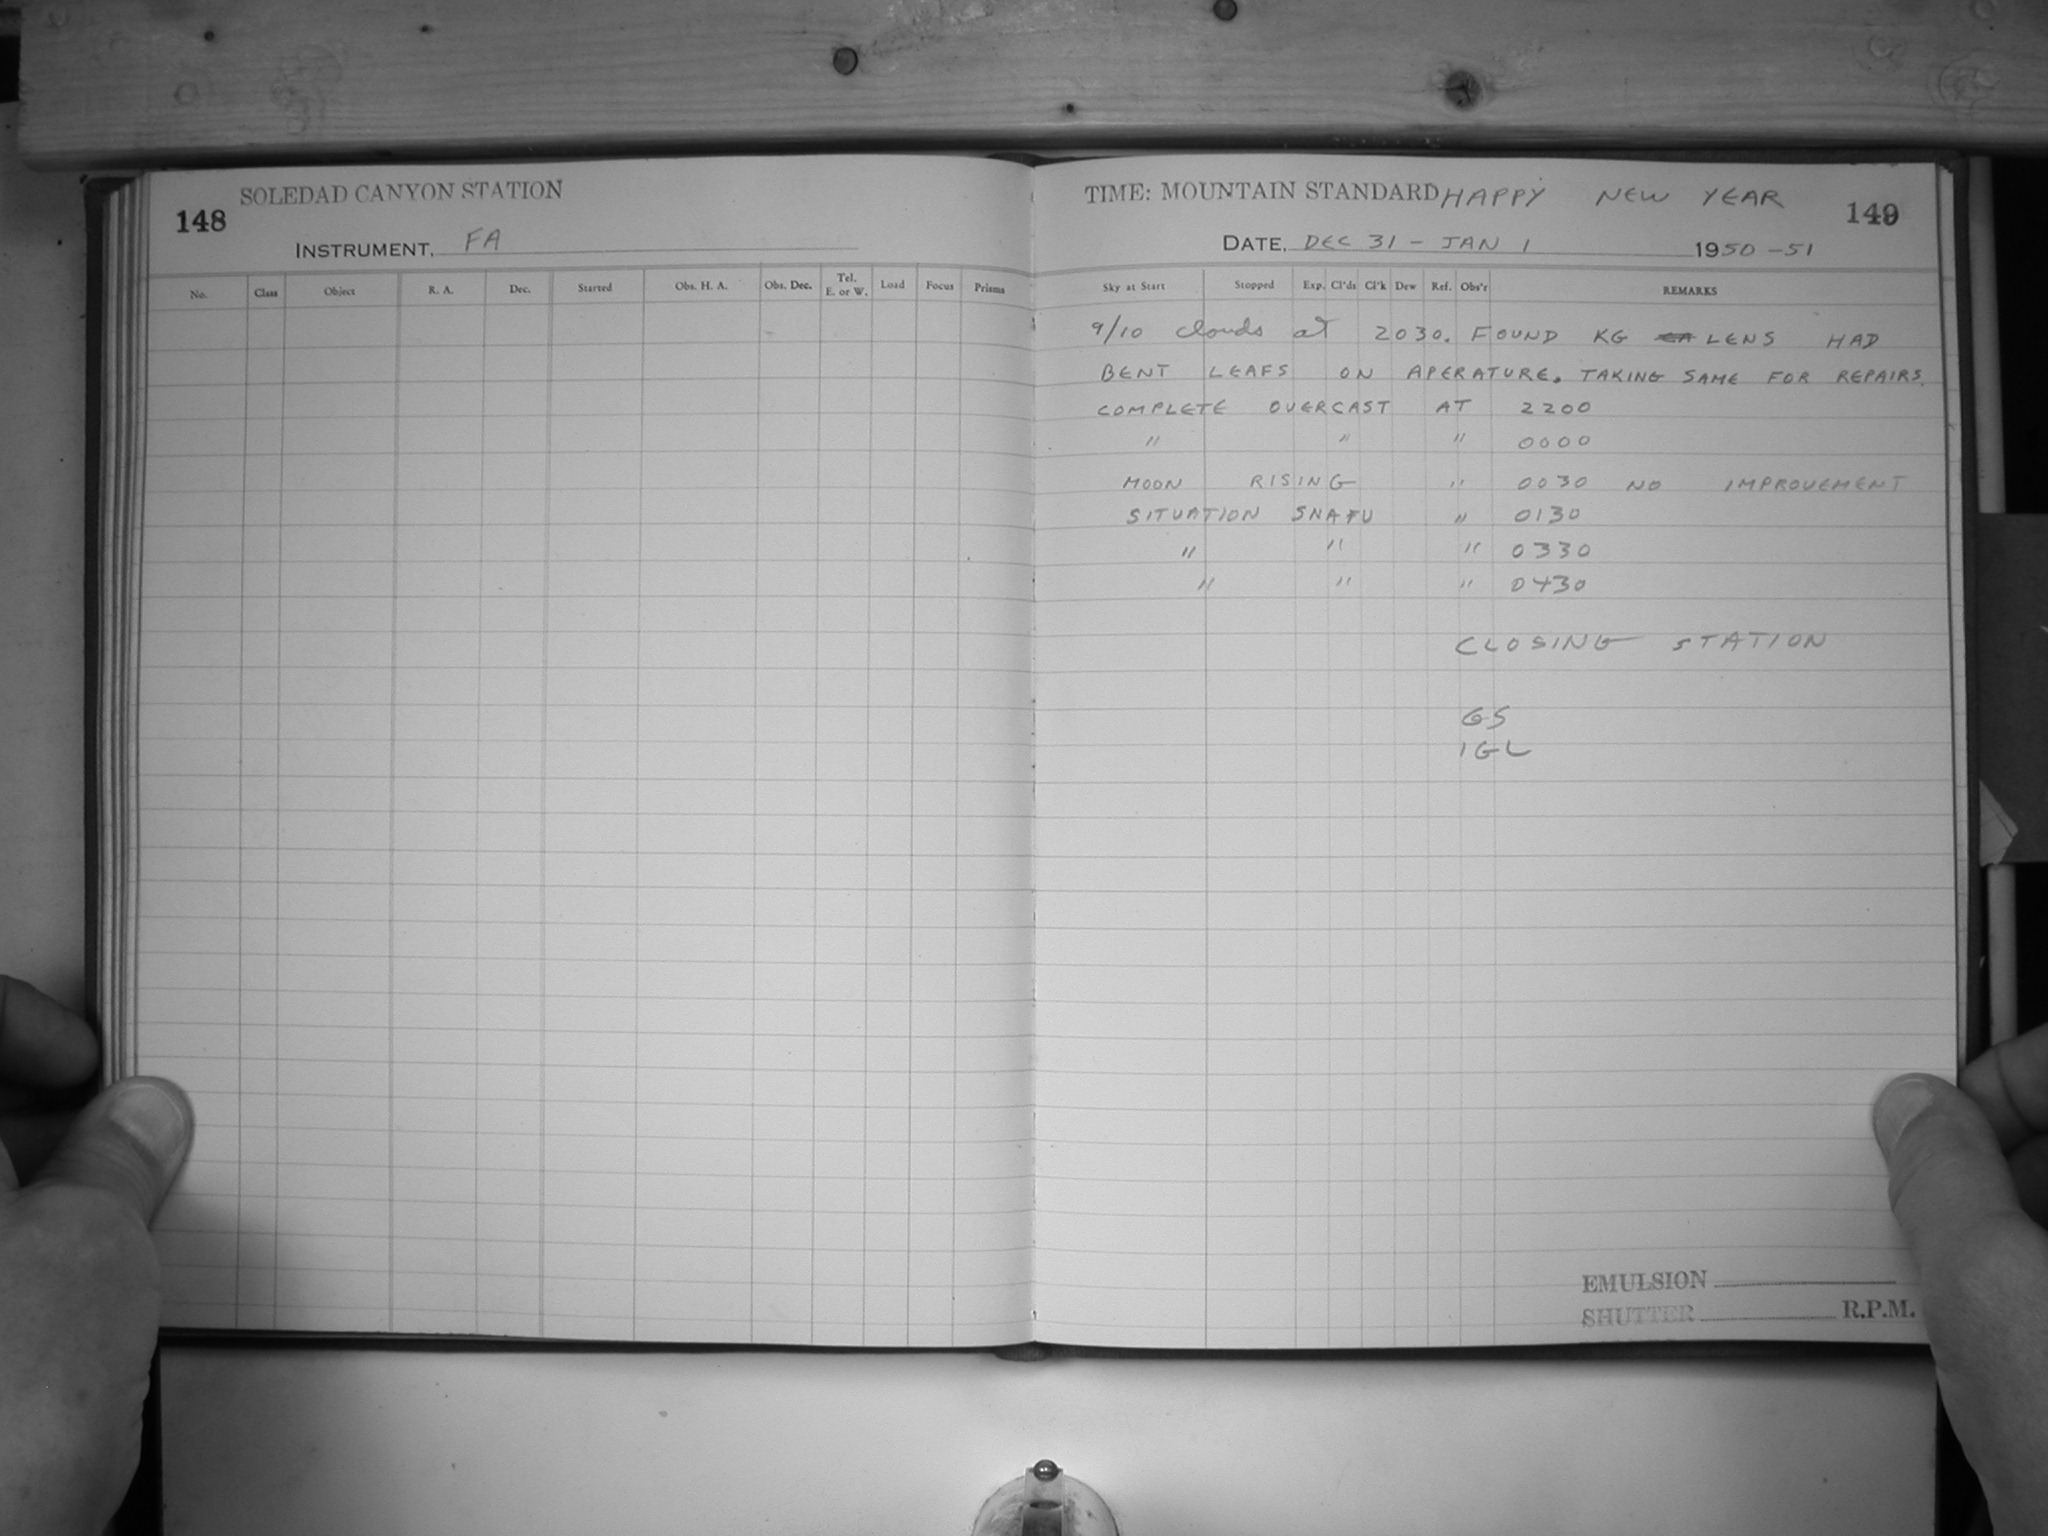 SOLEDAD CANYON STATION
148
INSTRUMENT, FA
No. Class Object R. A. Dec. Started Obs. H. A. Obs. Dec. Tel. E. or W. Load Focus Prisms
TIME: MOUNTAIN STANDARD HAPPY NEW YEAR
149
DATE, DEC 31 - JAN 1 1950-51
Sky at Start Stopped Exp. Cl'ds Cl'k Dew Ref. Obs'r REMARKS
9/10 clouds at 2030. FOUND KG LENS HAD
BENT LEAFS ON APERATURE. TAKING SAME FOR REPAIRS.
COMPLETE OVERCAST AT 2200
" " " 0000
MOON RISING " 0030 NO IMPROVEMENT
SITUATION SNAFU " 0130
" " " 0330
" " " 0430
CLOSING STATION
GS
IGL
EMULSION
SHUTTER R.P.M.